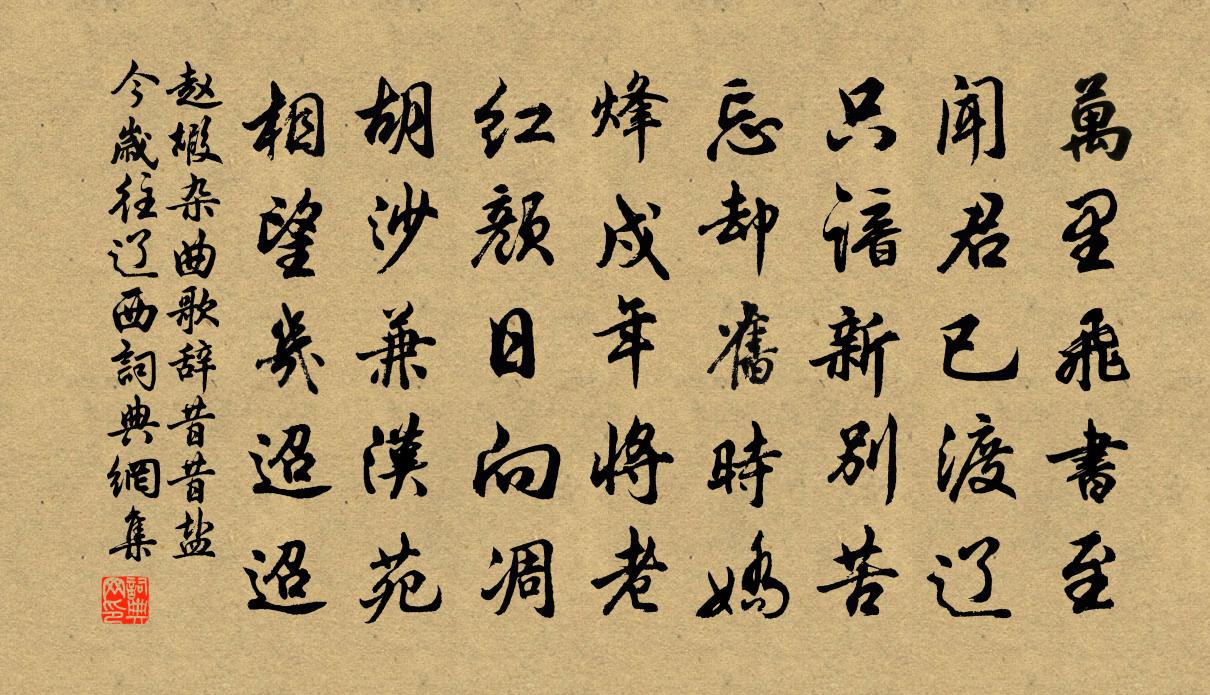 萬里飛書至
闻君已渡辽
只谙新别苦
忘却舊時嬌
烽戍年将老
红颜日向凋
胡沙兼漢苑
相望幾迢迢
赵嘏杂曲歌辞昔昔盐
今歲往辽西詞典網集
詞典
网印